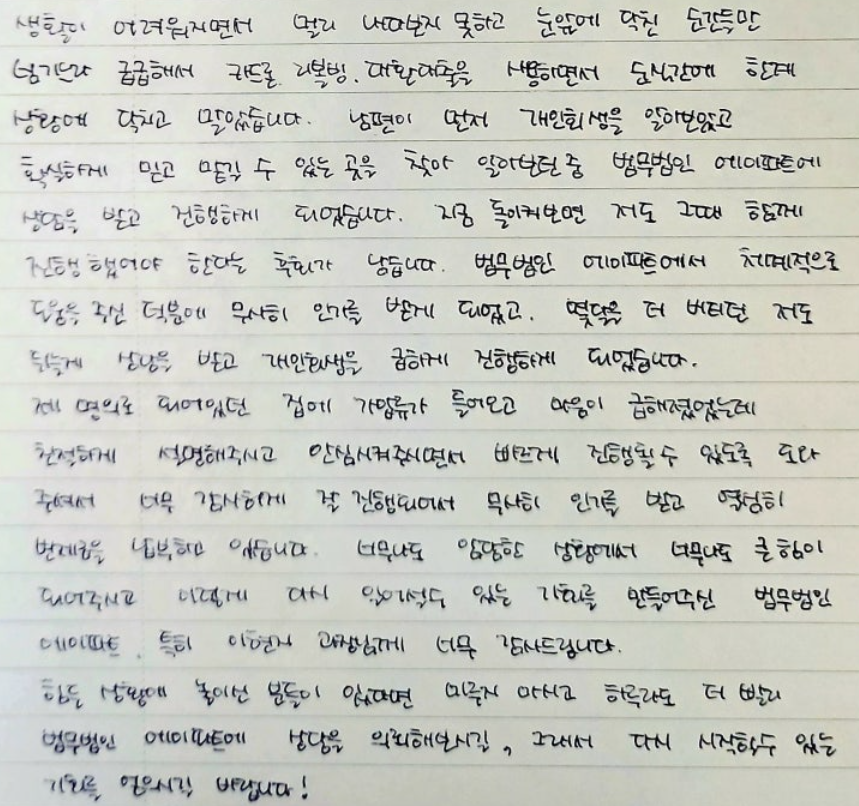 생활이 어려워지면서 멀리 내다보지 못하고 눈앞에 닥친 순간들만
넘기느라 급급해서 카드론, 리볼빙, 대환대출을 사용하면서 순식간에 한계
상황에 닥치고 말았습니다. 남편이 먼저 개인회생을 알아보았고
확실하게 믿고 맡길 수 있는 곳을 찾아 알아보던 중 법무법인 에이파트에
상담을 받고 진행하게 되었습니다. 지금 돌이켜보면 저도 그때 함께
진행했었어야 한다는 후회가 남습니다. 법무법인 에이파트에서 체계적으로
도움을 주신 덕분에 무사히 인가를 받게 되었고, 몇달을 더 버티던 저도
뒤늦게 상담을 받고 개인회생을 급하게 진행하게 되었습니다.
제 명의로 되어있던 집에 가압류가 들어오고 마음이 급해졌었는데
친절하게 설명해주시고 안심시켜주시면서 빠르게 진행될 수 있도록 도와
주셔서 너무 감사하게 잘 진행되어서 무사히 인가를 받고 열심히
변제금을 납부하고 있습니다. 너무나도 암담한 상황에서 너무나도 큰 힘이
되어주시고 이렇게 다시 일어설수 있는 기회를 만들어주신 법무법인
에이파트, 특히 이현지 과장님께 너무 감사드립니다.
힘든 상황에 놓이신 분들이 있다면 미루지 마시고 하루라도 더 빨리
법무법인 에이파트에 상담을 의뢰해보시길, 그래서 다시 시작할수 있는
기회를 얻으시길 바랍니다!